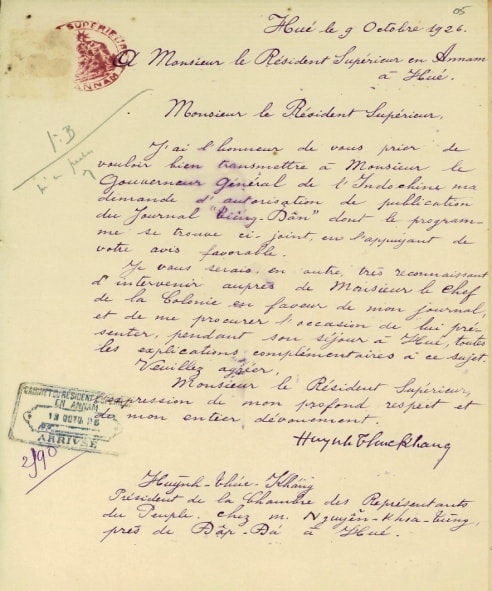 05
Hué le 9 Octobre 1926.
A Monsieur le Résident Supérieur en Annam
à Hué.
Monsieur le Résident Supérieur,
J'ai l'honneur de vous prier de
vouloir bien transmettre à Monsieur le
Gouverneur Général de l'Indochine ma
demande d'autorisation de publication
du Journal "Tiếng-Dân" dont le program-
me se trouve ci-joint, en l'appuyant de
votre avis favorable.
Je vous serais en outre, très reconnaissant
d'intervenir auprès de Monsieur le Chef
de la Colonie en faveur de mon journal,
et de me procurer l'occasion de lui pré-
senter, pendant son séjour à Hué, toutes
les explications complémentaires à ce sujet.
Veuillez agréer,
Monsieur le Résident Supérieur,
expression de mon profond respect et
de mon entier dévouement.
CABINET DU RÉSIDENT
EN ANNAM
13 OCTO
ARRIVÉE
2190
Huỳnhthuckhang
Huỳnh-Thúc-Kháng
Président de la Chambre des Représentants
du Peuple. chez M. Nguyễn-Khoa-Tùng,
près de Đập-Đá à Hué.